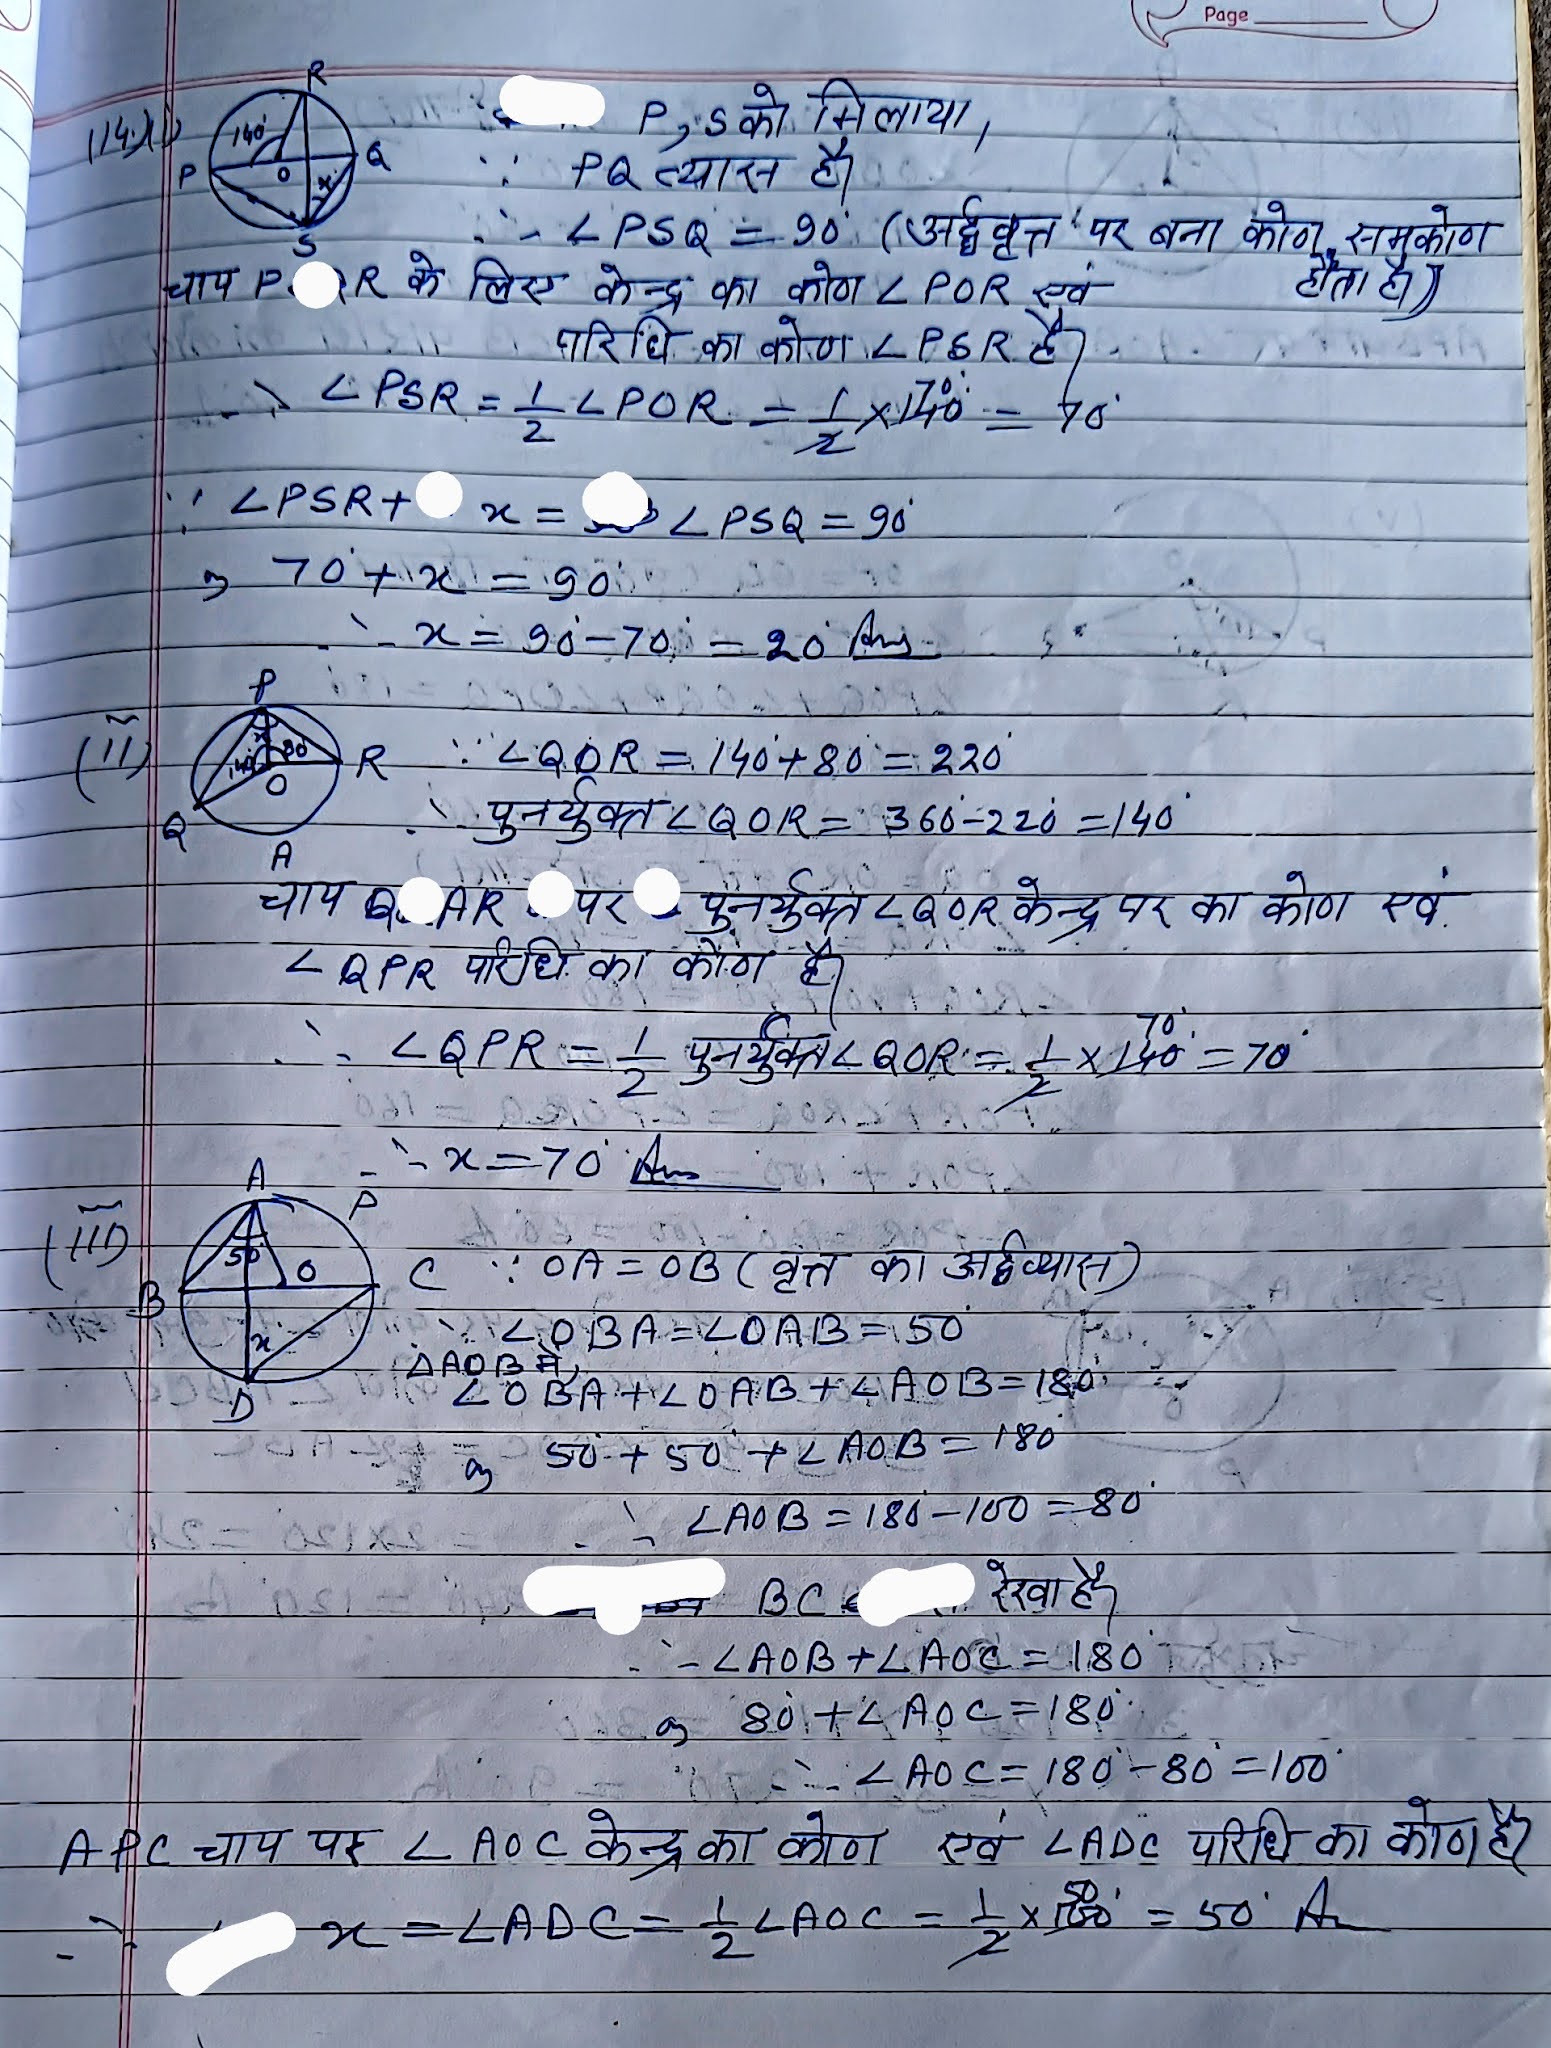 Page
(14)(i)
R
140°
P
O
Q
x
S
P, S को मिलाया,
∵ PQ व्यास है।
∴ ∠PSQ = 90° (अर्द्धवृत्त पर बना कोण समकोण होता है।)
चाप P R के लिए केन्द्र का कोण ∠POR एवं
परिधि का कोण ∠PSR है।
∴ ∠PSR = 1/2 ∠POR = 1/2 × 140° = 70°
70°
∵ ∠PSR + x = ∠PSQ = 90°
या 70° + x = 90°
∴ x = 90° - 70° = 20° Ans
(ii)
P
x
140°
80°
R
O
Q
A
∵ ∠QOR = 140° + 80° = 220°
∴ पुनर्युक्त ∠QOR = 360° - 220° = 140°
चाप Q AR पर पुनर्युक्त ∠QOR केन्द्र पर का कोण एवं
∠QPR परिधि का कोण है।
∴ ∠QPR = 1/2 पुनर्युक्त ∠QOR = 1/2 × 140° = 70°
70°
∴ x = 70° Ans
(iii)
A
P
50
O
B
C
x
D
∵ OA = OB (वृत्त का अर्द्धव्यास)
∴ ∠OBA = ∠OAB = 50°
ΔAOB में,
∠OBA + ∠OAB + ∠AOB = 180°
या 50° + 50° + ∠AOB = 180°
∴ ∠AOB = 180° - 100 = 80°
BC रेखा है।
∴ ∠AOB + ∠AOC = 180°
या 80° + ∠AOC = 180°
∴ ∠AOC = 180° - 80° = 100°
APC चाप पर ∠AOC केन्द्र का कोण एवं ∠ADC परिधि का कोण है।
∴ x = ∠ADC = 1/2 ∠AOC = 1/2 × 100° = 50° An
50